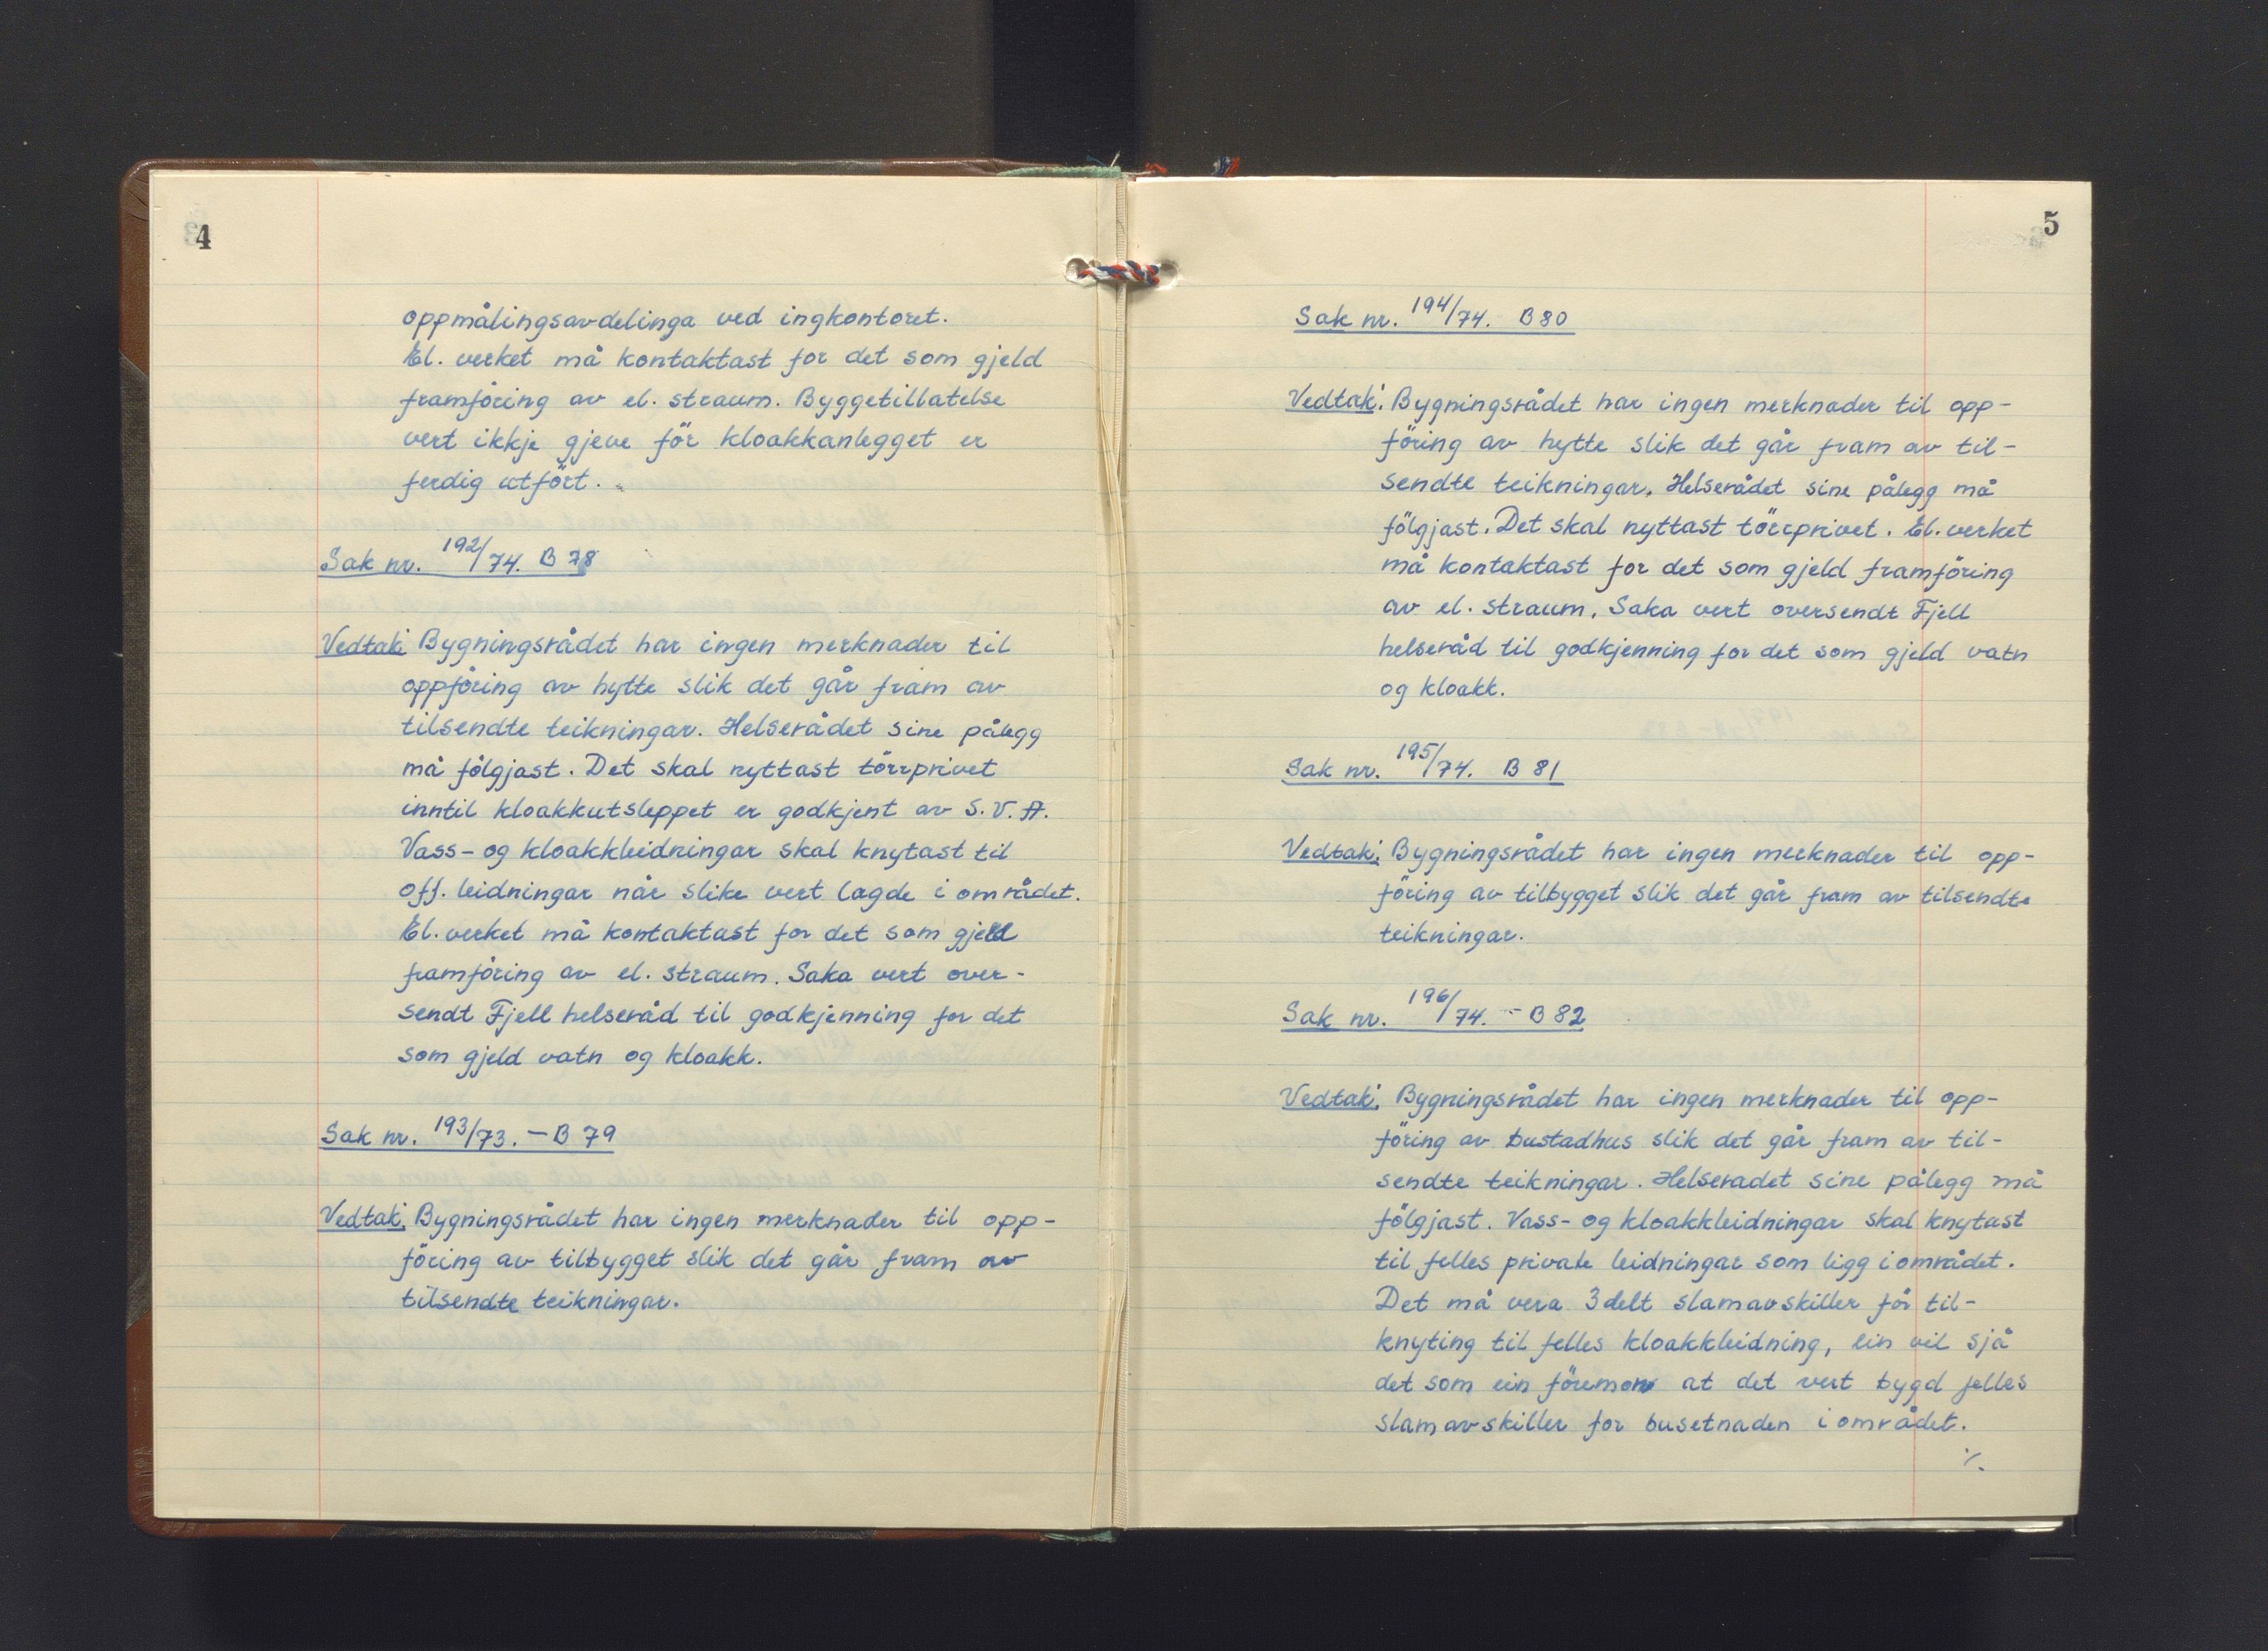 4
oppmålingsavdelinga ved ingkontoret.
El. verket må kontaktast for det som gjeld
framföring av el. straum. Byggetillatelse
vert ikkje gjeve för kloakkanlegget er
ferdig utfört.
Sak nr. 192/74. B 78
Vedtak: Bygningsrådet har ingen merknader til
oppföring av hytte slik det går fram av
tilsendte teikningar. Helserådet sine pålegg
må fölgjast. Det skal nyttast törrprivet
inntil kloakkutsleppet er godkjent av S.V.A.
Vass- og kloakkleidningar skal knytast til
off. leidningar når slike vert lagde i området.
El. verket må kontaktast for det som gjeld
framföring av el. straum. Saka vert over-
sendt Fjell helseråd til godkjenning for det
som gjeld vatn og kloakk.
Sak nr. 193/73. - B 79
Vedtak: Bygningsrådet har ingen merknader til opp-
föring av tilbygget slik det går fram av
tilsendte teikningar.
5
Sak nr. 194/74. B 80
Vedtak: Bygningsrådet har ingen merknader til opp-
föring av hytte slik det går fram av til-
sendte teikningar. Helserådet sine pålegg må
fölgjast. Det skal nyttast törrprivet. El. verket
må kontaktast for det som gjeld framföring
av el. straum. Saka vert oversendt Fjell
helseråd til godkjenning for det som gjeld vatn
og kloakk.
Sak nr. 195/74. B 81
Vedtak: Bygningsrådet har ingen merknader til opp-
föring av tilbygget slik det går fram av tilsendte
teikningar.
Sak nr. 196/74. - B 82
Vedtak: Bygningsrådet har ingen merknader til opp-
föring av bustadhus slik det går fram av til-
sendte teikningar. Helseradet sine pålegg må
fölgjast. Vass- og kloakkleidningar skal knytast
til felles private leidningar som ligg i området.
Det må vera 3 delt slamavskiller för til-
knyting til felles kloakkleidning, ein vil sjå
det som ein föremon at det vert bygd felles
slamavskiller for busetnaden i området.
./.